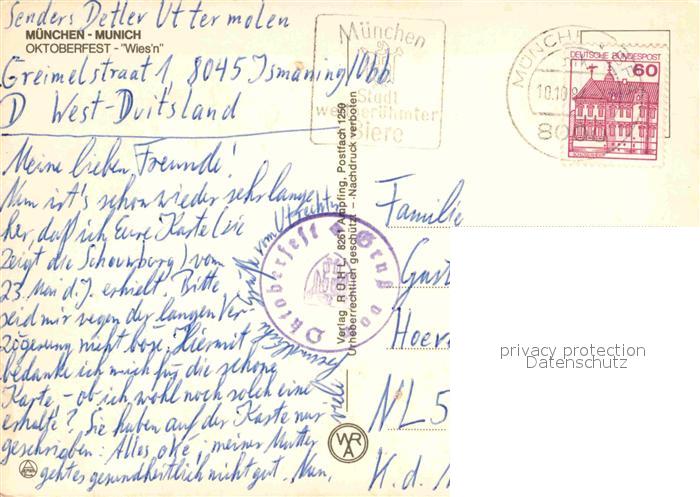 Senders Detlev Uttermolen
MÜNCHEN - MUNICH
OKTOBERFEST - "Wies'n"
Greimelstraat 1, 8045 Ismaning/Obb.
D West-Duitsland
Meine lieben Freunde!
Nun ist's schon wieder sehr lange
her, daß ich Eure Karte (sie
zeigt die Schouwburg) vom
23. Mai d.J. erhielt. Bitte
seid mir wegen der langen Ver-
zögerung nicht böse. Hiermit
bedanke ich mich für die schöne
Karte, - ob ich wohl noch solch eine
erhalte? Sie haben auf der Karte nur
geschrieben: Alles oké; meiner Mutter
geht es gesundheitlich nicht gut. Nun,
viele
Grüße vom
Oktoberfest
Gruß vom
Verlag RÜHL, 8261 Ampfing, Postfach 1250
Urheberrechtlich geschützt - Nachdruck verboten
WRA
München
Stadt
weltberühmter
Biere
MÜNCHEN
10.10.8
80
DEUTSCHE BUNDESPOST
60
Familie
Gust
Hoev
NL 5
K.d.
privacy protection
Datenschutz